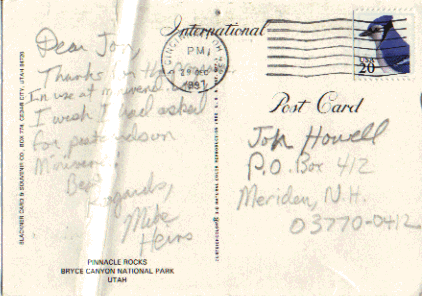 International
CINCINNATI, OH
PM
29 DEC
1997
USA
20
Post Card
Dear Jon,
Thanks for the
In use at
I wish I had asked
for postcards on
Best
Regards,
Mike
Heins
Jon Howell
P.O. Box 412
Meriden, N.H.
03770-0412
PINNACLE ROCKS
BRYCE CANYON NATIONAL PARK
UTAH
BLACKNER CARD & SOUVENIR CO - BOX 774, CEDAR CITY, UTAH 84720